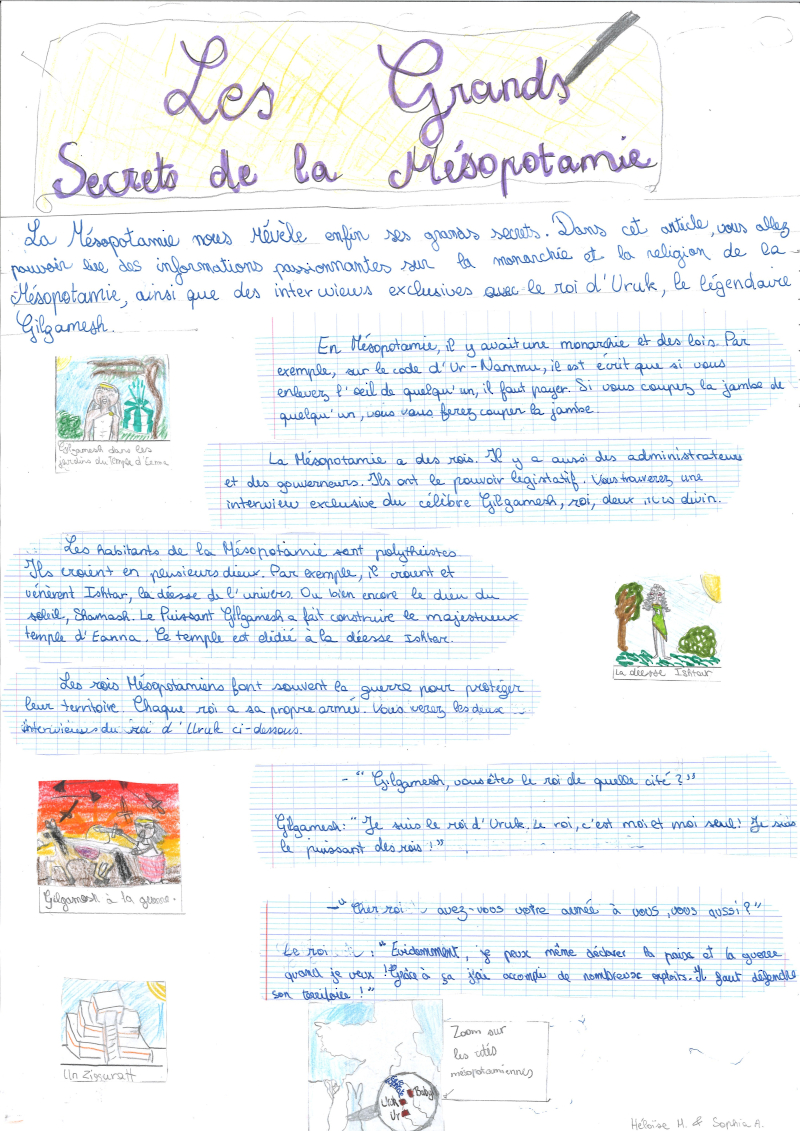 Les Grands
Secrets de la Mésopotamie
La Mésopotamie nous révèle enfin ses grands secrets. Dans cet article, vous allez
pouvoir lire des informations passionnantes sur la monarchie et la religion de la
Mésopotamie, ainsi que des interwiews exclusives avec le roi d'Uruk, le légendaire
Gilgamesh.
En Mésopotamie, il y avait une monarchie et des lois. Par
exemple, sur le code d'Ur-Nammu, il est écrit que si vous
enlevez l'oeil de quelqu'un, il faut payer. Si vous coupez la jambe de
quelqu'un, vous vous ferez couper la jambe.
Gilgamesh dans les
jardins du temple d'Eanna
La Mésopotamie a des rois. Il y a aussi des administrateurs
et des gouverneurs. Ils ont le pouvoir législatif. Vous trouverez une
interwiew exclusive du célibre Gilgamesh, roi, divin.
Les habitants de la Mésopotamie sont polythéistes.
Ils croient en plusieurs dieux. Par exemple, il croient et
vénèrent Ishtar, la déesse de l'univers. Ou bien encore le dieu du
soleil, Shamash. Le Puissant Gilgamesh a fait construire le majestueux
temple d'Eanna. Ce temple est dédié à la déesse Ishtar.
La déesse Ishtar
Les rois Mésopotamiens font souvent la guerre pour protéger
leur territoire. Chaque roi a sa propre armée. Vous verez les deux
interwiews du roi d'Uruk ci-dessous.
- "Gilgamesh, vous êtes le roi de quelle cité ?"
Gilgamesh : "Je suis le roi d'Uruk. Le roi, c'est moi et moi seul ! Je suis
le puissant des rois !"
Gilgamesh à la guerre.
- "Cher roi avez-vous votre armée à vous, vous aussi ?"
Le roi : "Évidemment, je peux même déclarer la paix et la guerre
quand je veux ! Grâce à ça j'ai accompli de nombreux exploits. Il faut défendre
son territoire !"
Un Ziggurat
Zoom sur
les cités
mésopotamiennes
Babyl
Uruk
Ur
Héloïse M. & Sophia A.